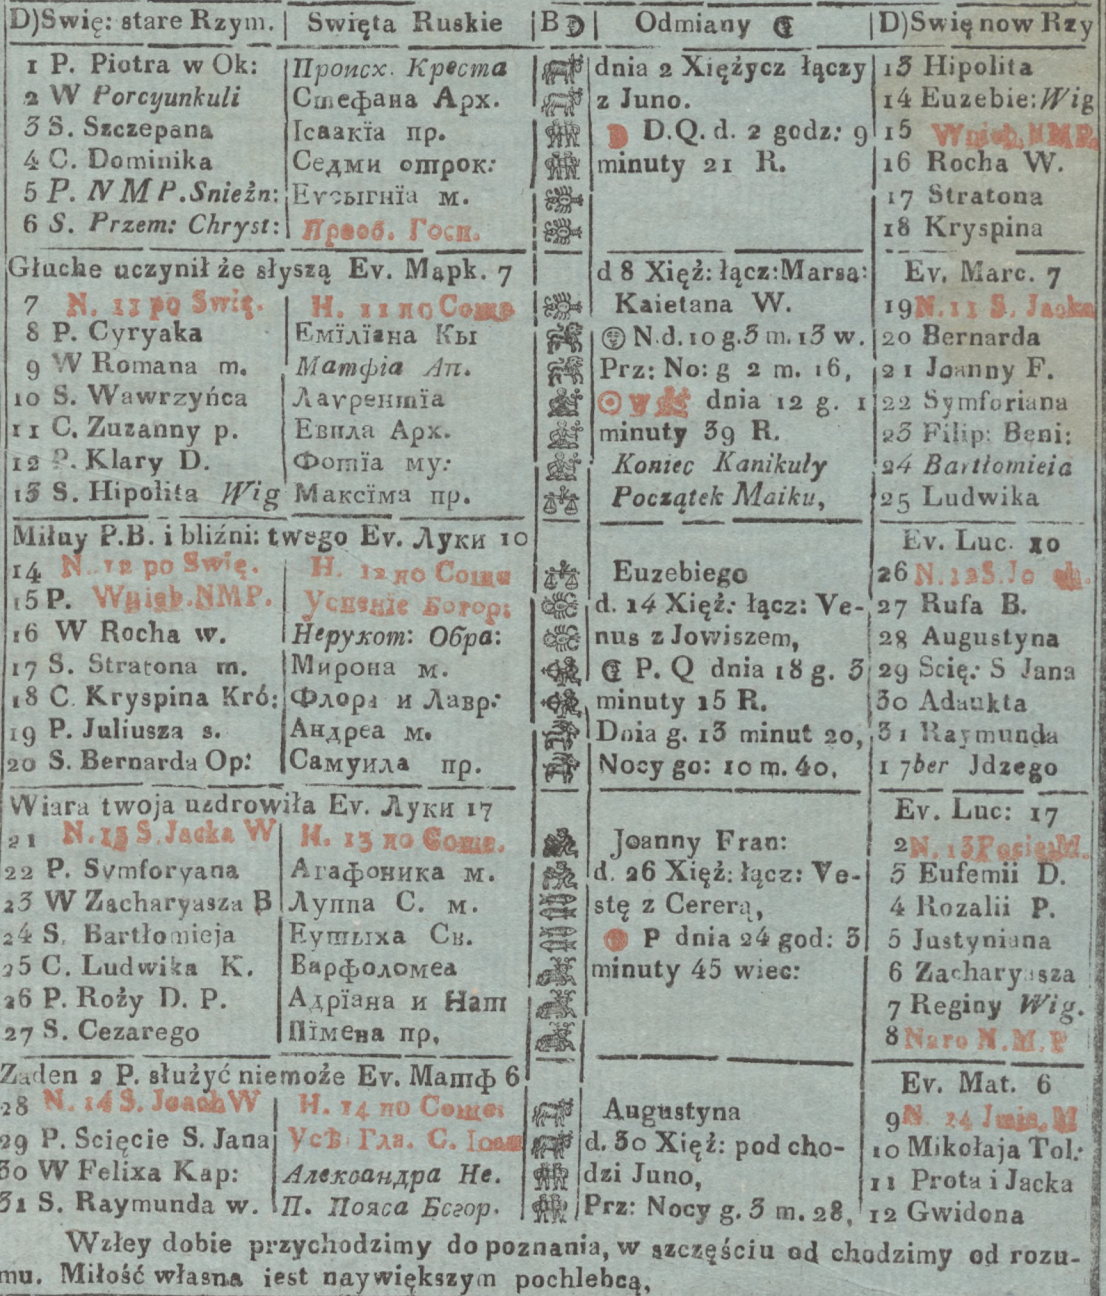 D)Swię: stare Rzym. | Swięta Ruskie | B | Odmiany | D)Swię now Rzy
1 P. Piotra w Ok: Происх. Креста dnia 2 Xiężycz łączy 13 Hipolita
2 W Porcyunkuli Стефана Арх. z Juno. 14 Euzebie: Wig
3 S. Szczepana Ісаакїа пр. D.Q. d. 2 godz: 9 15 Wnieb. NMP.
4 C. Dominika Седми отрок: minuty 21 R. 16 Rocha W.
5 P. NMP. Snieżn: Еусыгнїа м. 17 Stratona
6 S. Przem: Chryst: Преоб. Госп. 18 Kryspina
Głuche uczynił że słyszą Ev. Марк. 7 d 8 Xięż: łącz: Marsa: Ev. Marc. 7
7 N. 11 po Swię. Н. 11 по Соше Kaietana W. 19 N. 11 S. Jacka
8 P. Cyryaka Емїлїана Кы N. d. 10 g. 3 m. 13 w. 20 Bernarda
9 W Romana m. Матфіа Ап. Prz: No: g 2 m. 16, 21 Joanny F.
10 S. Wawrzyńca Лаурентїа dnia 12 g. 1 22 Symforiana
11 C. Zuzanny p. Евпла Арх. minuty 39 R. 23 Filip: Beni:
12 P. Klary D. Фотїа му: Koniec Kanikuły 24 Bartłomieia
13 S. Hipolita Wig Максїма пр. Początek Maiku, 25 Ludwika
Miłuy P.B. i bliźni: twego Ev. Луки 10 Ev. Luc. 10
14 N. 12 po Swię. Н. 12 по Соше Euzebiego 26 N. 12 S. Jo
15 P. Wnieb. NMP. Успенїе Богор: d. 14 Xięż: łącz: Ve- 27 Rufa B.
16 W Rocha w. Нерукот: Обра: nus z Jowiszem, 28 Augustyna
17 S. Stratona m. Мирона м. P. Q dnia 18 g. 3 29 Scię: S Jana
18 C. Kryspina Kró: Флора и Лавр: minuty 15 R. 30 Adaukta
19 P. Juliusza s. Андреа м. Dnia g. 13 minut 20, 31 Raymunda
20 S. Bernarda Op: Самуила пр. Nocy go: 10 m. 40, 1 7ber Jdzego
Wiara twoja uzdrowiła Ev. Луки 17 Ev. Luc: 17
21 N. 13 S. Jacka W Н. 13 по Соше. Joanny Fran: 2 N. 13 Pocie M.
22 P. Symforyana Агафоника м. d. 26 Xięż: łącz: Ve- 3 Eufemii D.
23 W Zacharyasza B Луппа С. м. stę z Cererą, 4 Rozalii P.
24 S. Bartłomieja Еутыха Св. P dnia 24 god: 3 5 Justyniana
25 C. Ludwika K. Варфоломеа minuty 45 wiec: 6 Zacharyasza
26 P. Roży D. P. Адрїана и Нат 7 Reginy Wig.
27 S. Cezarego Пїмена пр, 8 Naro N. M. P
Zaden 2 P. służyć niemoże Ev. Матф 6 Ev. Mat. 6
28 N. 14 S. Joach W Н. 14 по Соше: Augustyna 9 N. 14 Jmia. M
29 P. Scięcie S. Jana Усѣ: Гла. С. Іоан d. 30 Xięż: pod cho- 10 Mikołaja Tol:
30 W Felixa Kap: Александра Не. dzi Juno, 11 Prota i Jacka
31 S. Raymunda w. П. Пояса Бгор. Prz: Nocy g. 3 m. 28, 12 Gwidona
Wzłey dobie przychodzimy do poznania, w szczęściu od chodzimy od rozu-
mu. Miłość własna iest naywiększym pochlebcą,